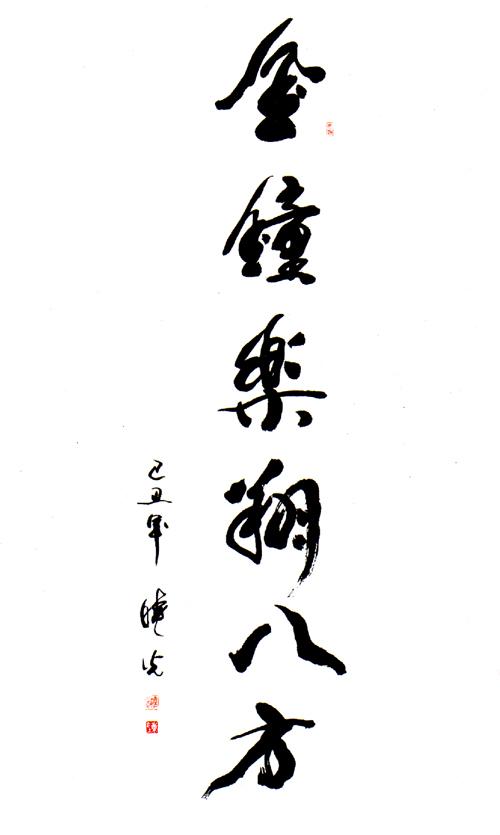 金鐘樂翔八方
己丑年 曉光